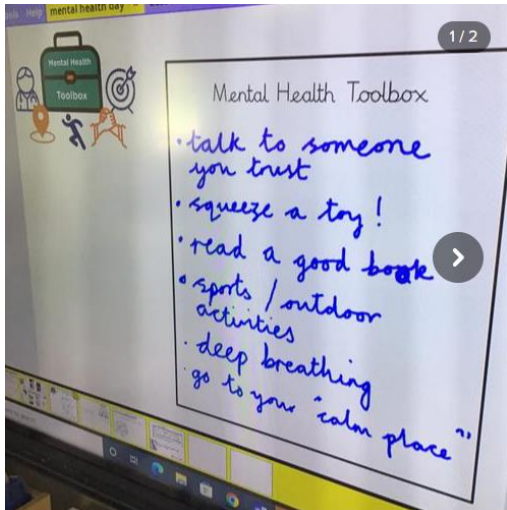 Help
mental health day
1/2
Mental Health
Toolbox
Mental Health Toolbox
• talk to someone
you trust
• squeeze a toy!
• read a good book
• sports / outdoor
activities
• deep breathing
• go to your "calm place"